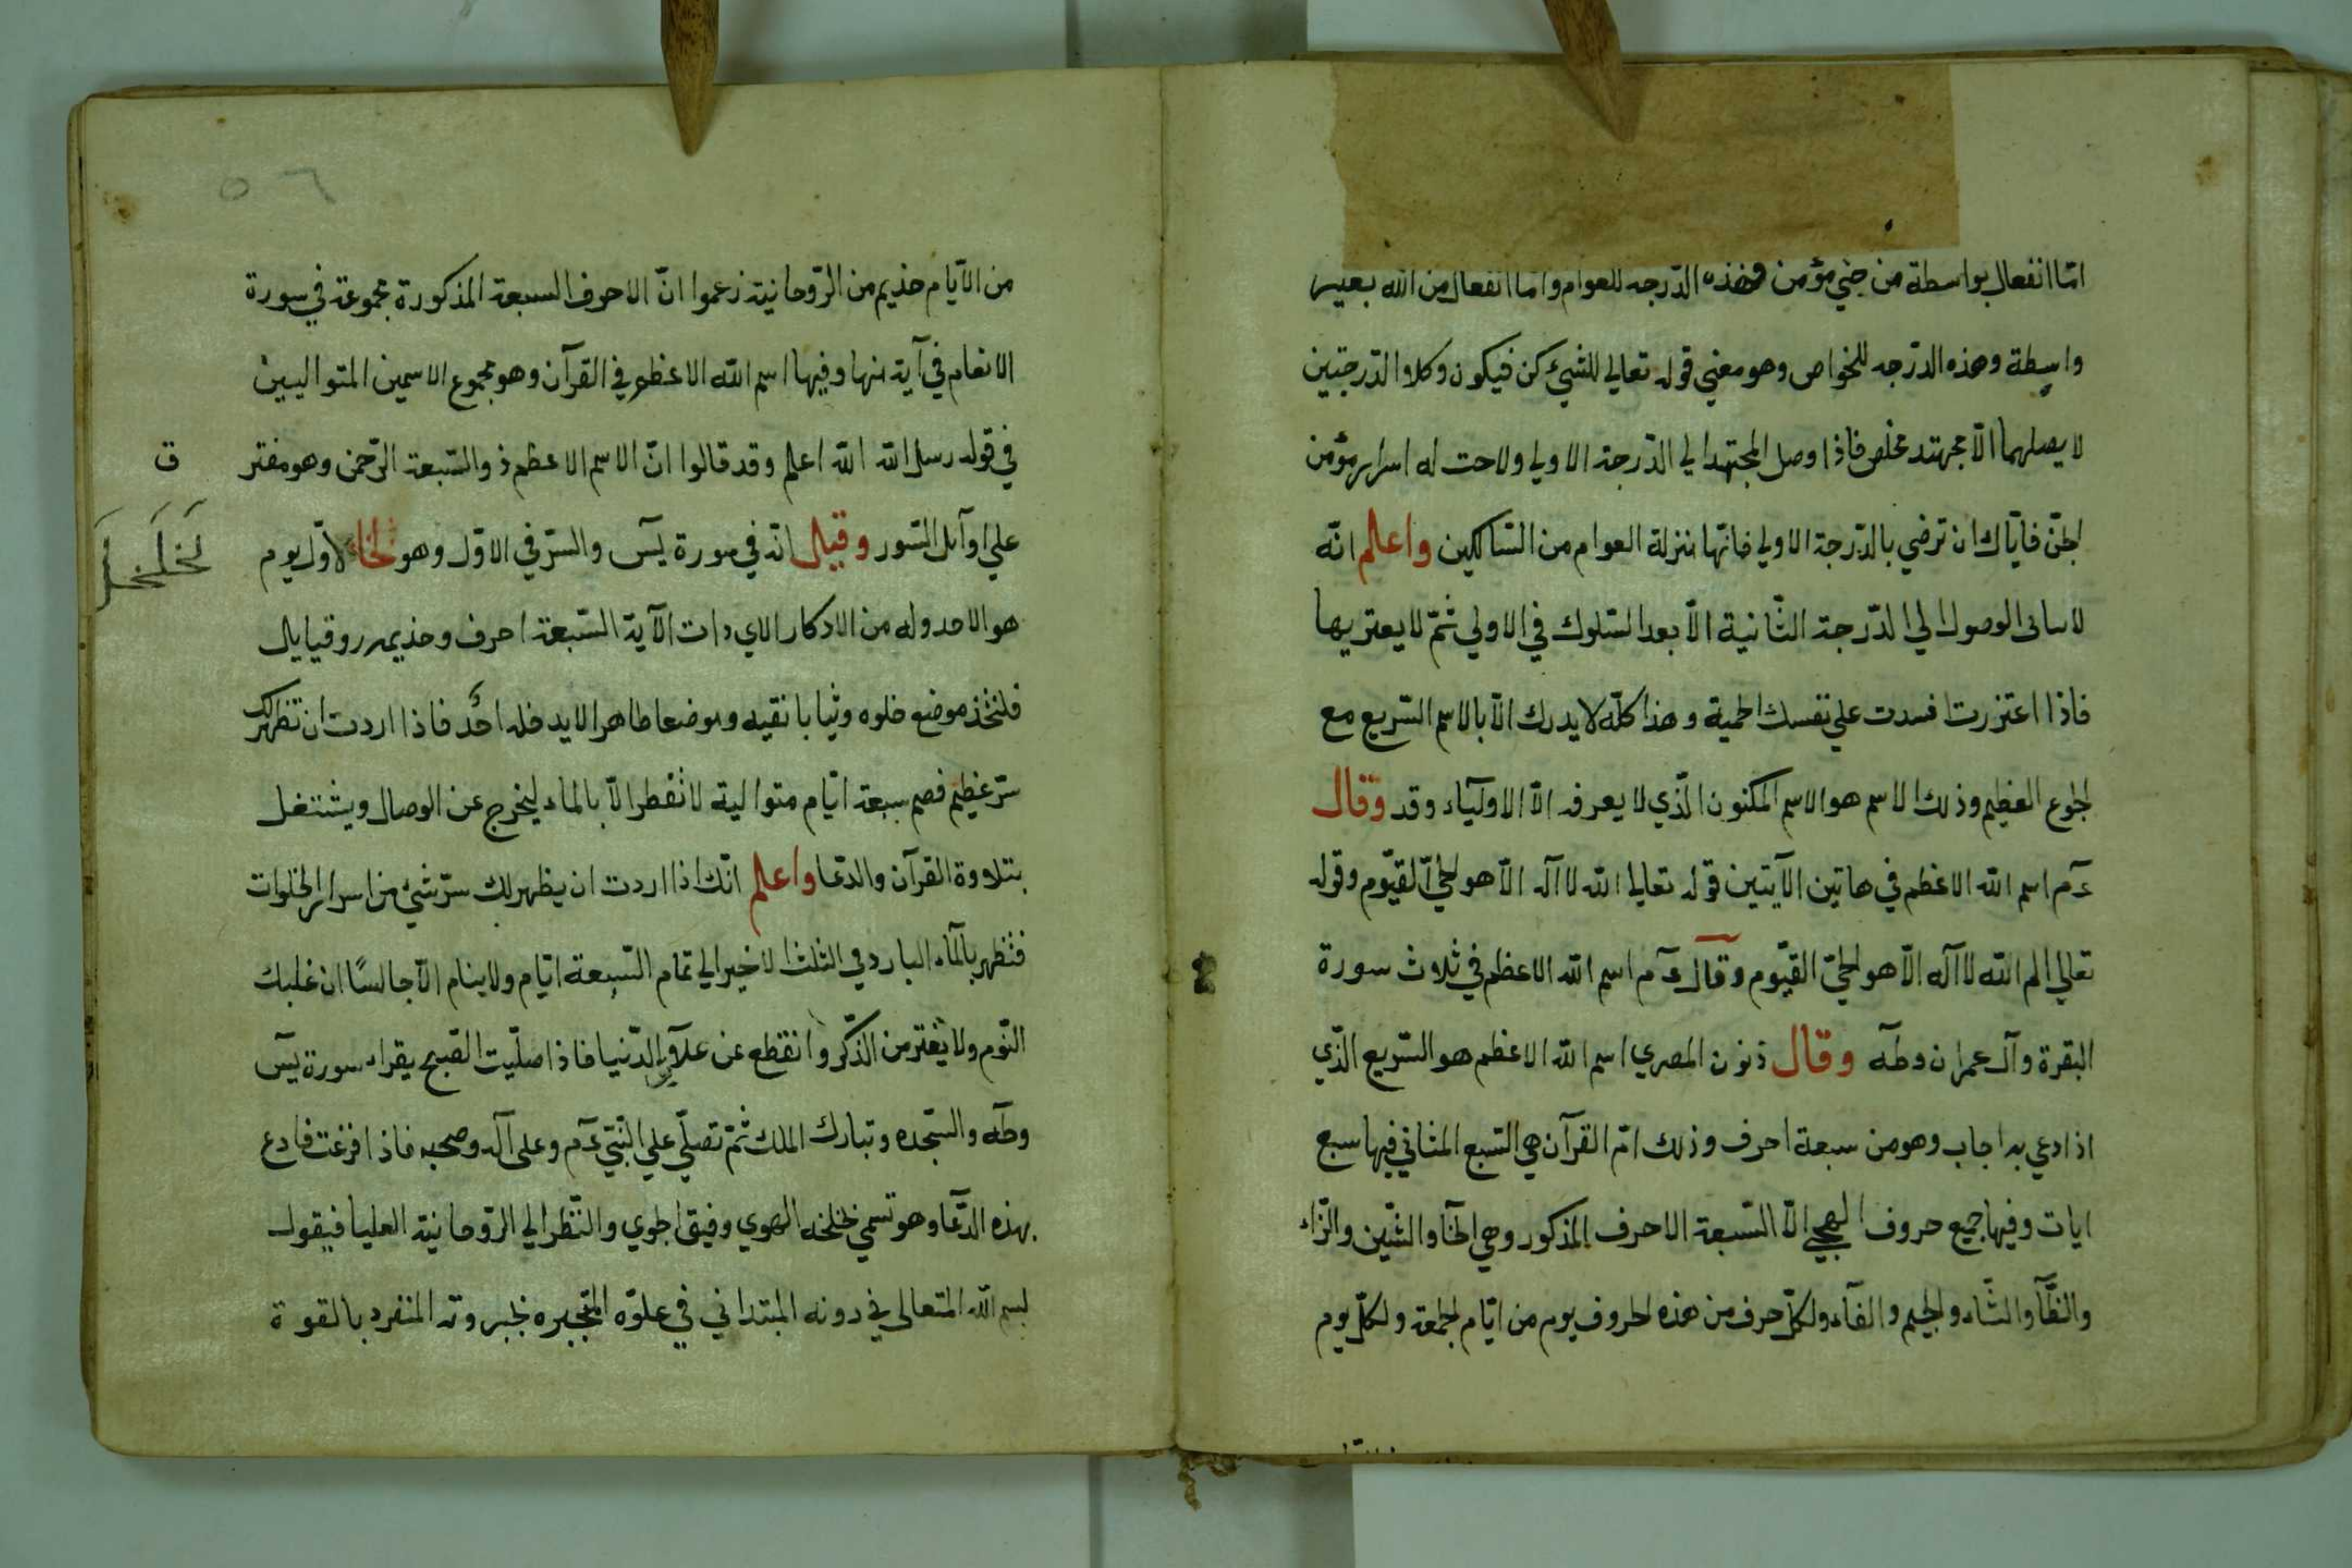 امّا انفعال بواسطة من جني مؤمن فهذه الدّرجه للعوام وامّا انفعال من الله بغير
واسطة وهذه الدرّجه للخواص وهو معني قوله تعالي للشيئ كن فيكون وكلا والدّرجتين
لا يصلهما الّا مجهتد مخلص فاذا وصل المجتهد الي الدّرجة الاولي ولاحت له اسرار مؤمن
الجنّ فايّاك ان ترضي بالدّرجة الاولي فانّها بنزلة العوام من السّالكين واعلم انّه
لا ساتى الوصول الي الدّرجة الثّانية الّا بعد السّلوك في الاولي ثمّ لا يعتريها
فاذا اعتزرت افسدت علي نفسك الحمية وهذا كلّه لا يدرك الّا بالاسم السّريع مع
الجوع العظيم وذلك الاسم هو الاسم المكنون الّذي لا يعرفه الّا الاوليآء وقد وقال
عم اسم الله الاعظم في هاتين الآيتين قوله تعالي الله لا آله الّا هو الحيّ القيّوم وقوله
تعالي الم الله لا آله الّا هو الحيّ القيّوم وقال عم اسم الله الاعظم في ثلاث سورة
البقرة وآل عمران وطه وقال ذنون المصري اسم الله الاعظم هو السّريع الّذي
اذا دعي به اجاب وهو من سبعة احرف وذلك امّ القرآن هي السّبع المثاني فيها سبع
ايات وفيها جميع حروف الهجي الّا السّبعة الاحرف المذكور وهي الخآ والشّين والزّاء
والظّآ والثّاء والجيم والفآء ولكلّ حرف من هذه الحروف يوم من ايّام الجمعة ولكلّ يوم
٥٦
من الآيّام خذيم من الرّوحانية زعموا انّ الاحرف السبعة المذكورة مجموعة في سورة
الانعام في آية منها وفيها اسم الله الاعظم في القرآن وهو مجموع الاسمين المتواليين
في قوله رسل الله الله اعلم وقد قالوا انّ الاسم الاعظم ذو السّبعة الرّحمن وهو مفتر
ق
علي اوآىل السّور وقيل انّه في سورة يس والسّر في الاوّل وهو الخاء لاوّل يوم
لخلخل
هو الاحد وله من الادكار الاي دات الآية السّبعة احرف وخذيمه روقيايل
فلتخّذ موضع خلوه وثيابا نقيه وموضعا طاهرا لا يدخله احَد فاذا اردت ان تظهر لك
سرّ عظيم فصم سبعة ايّام متوالية لا تفطر الّا بالماء ليخرج عن الوصال ويشتغل
بتلاوة القرآن والدّعا واعلم انّك اذا اردت ان يظهر لك سرّ شيئ من اسرار الخلوات
فتطهر بالمآء البارد في الثلث الاخير الي تمام السّبعة ايّام ولا ينام الّا جالسًا ان غلبك
النّوم ولا يفتر من الذّكر وانقطع عن علآيق الدّنيا فاذا صلّيت الصّبح يقراء سورة يس
وطه والسّجده وتبارك الملك ثمّ تصلّي علي النّبيّ عم وعلى آله وصحبه فاذا فرغت فادع
بهذه الدّعا وهو تسمي خلخله الهوي وفيق الجوي والنّظر الي الرّوحانية العليا فيقول
بسم الله المتعالى في دونه المتداني في علوّه المتجبره بجبروته المنفرد بالقوة